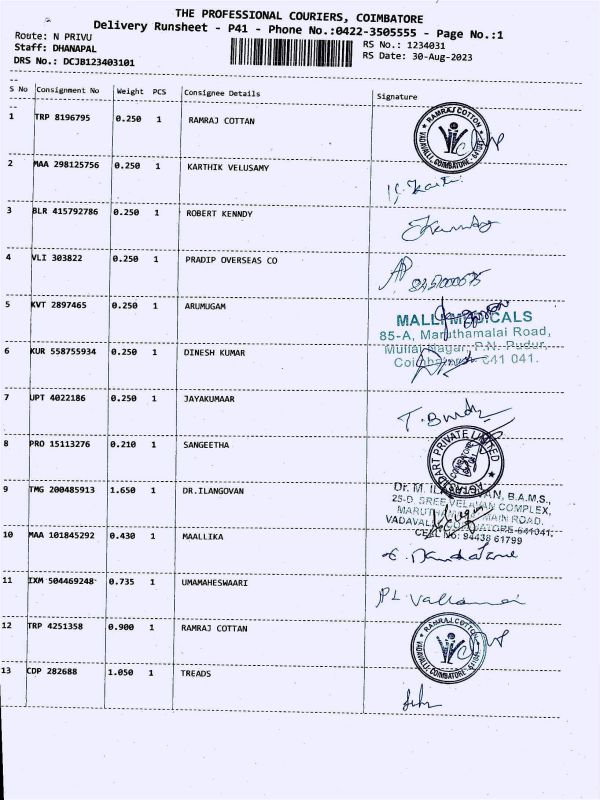 THE PROFESSIONAL COURIERS, COIMBATORE
Delivery Runsheet - P41 - Phone No.:0422-3505555 - Page No.:1
Route: N PRIVU
RS No.: 1234031
Staff: DHANAPAL
RS Date: 30-Aug-2023
DRS No.: DCJB123403101
S No Consignment No Weight PCS Consignee Details Signature
1 TRP 8196795 0.250 1 RAMRAJ COTTAN
RAMRAJ COTTON
VADAVALLI, COIMBATORE
2 MAA 298125756 0.250 1 KARTHIK VELUSAMY
3 BLR 415792786 0.250 1 ROBERT KENNDY
4 VLI 303822 0.250 1 PRADIP OVERSEAS CO
5 KVT 2897465 0.250 1 ARUMUGAM
85-A, Maruthamalai Road,
Mullai Nagar, P.N. Pudur,
6 KUR 558755934 0.250 1 DINESH KUMAR
7 UPT 4022186 0.250 1 JAYAKUMAAR
8 PRO 15113276 0.210 1 SANGEETHA
PRIVATE LIMITED
9 TMG 200485913 1.650 1 DR.ILANGOVAN
B.A.M.S.,
COMPLEX,
MAIN ROAD.
CELL No: 94438 61799
10 MAA 101845292 0.430 1 MAALLIKA
11 IXM 504469248 0.735 1 UMAMAHESWAARI
12 TRP 4251358 0.900 1 RAMRAJ COTTAN
RAMRAJ COTTON
VADAVALLI, COIMBATORE
13 CDP 282688 1.050 1 TREADS